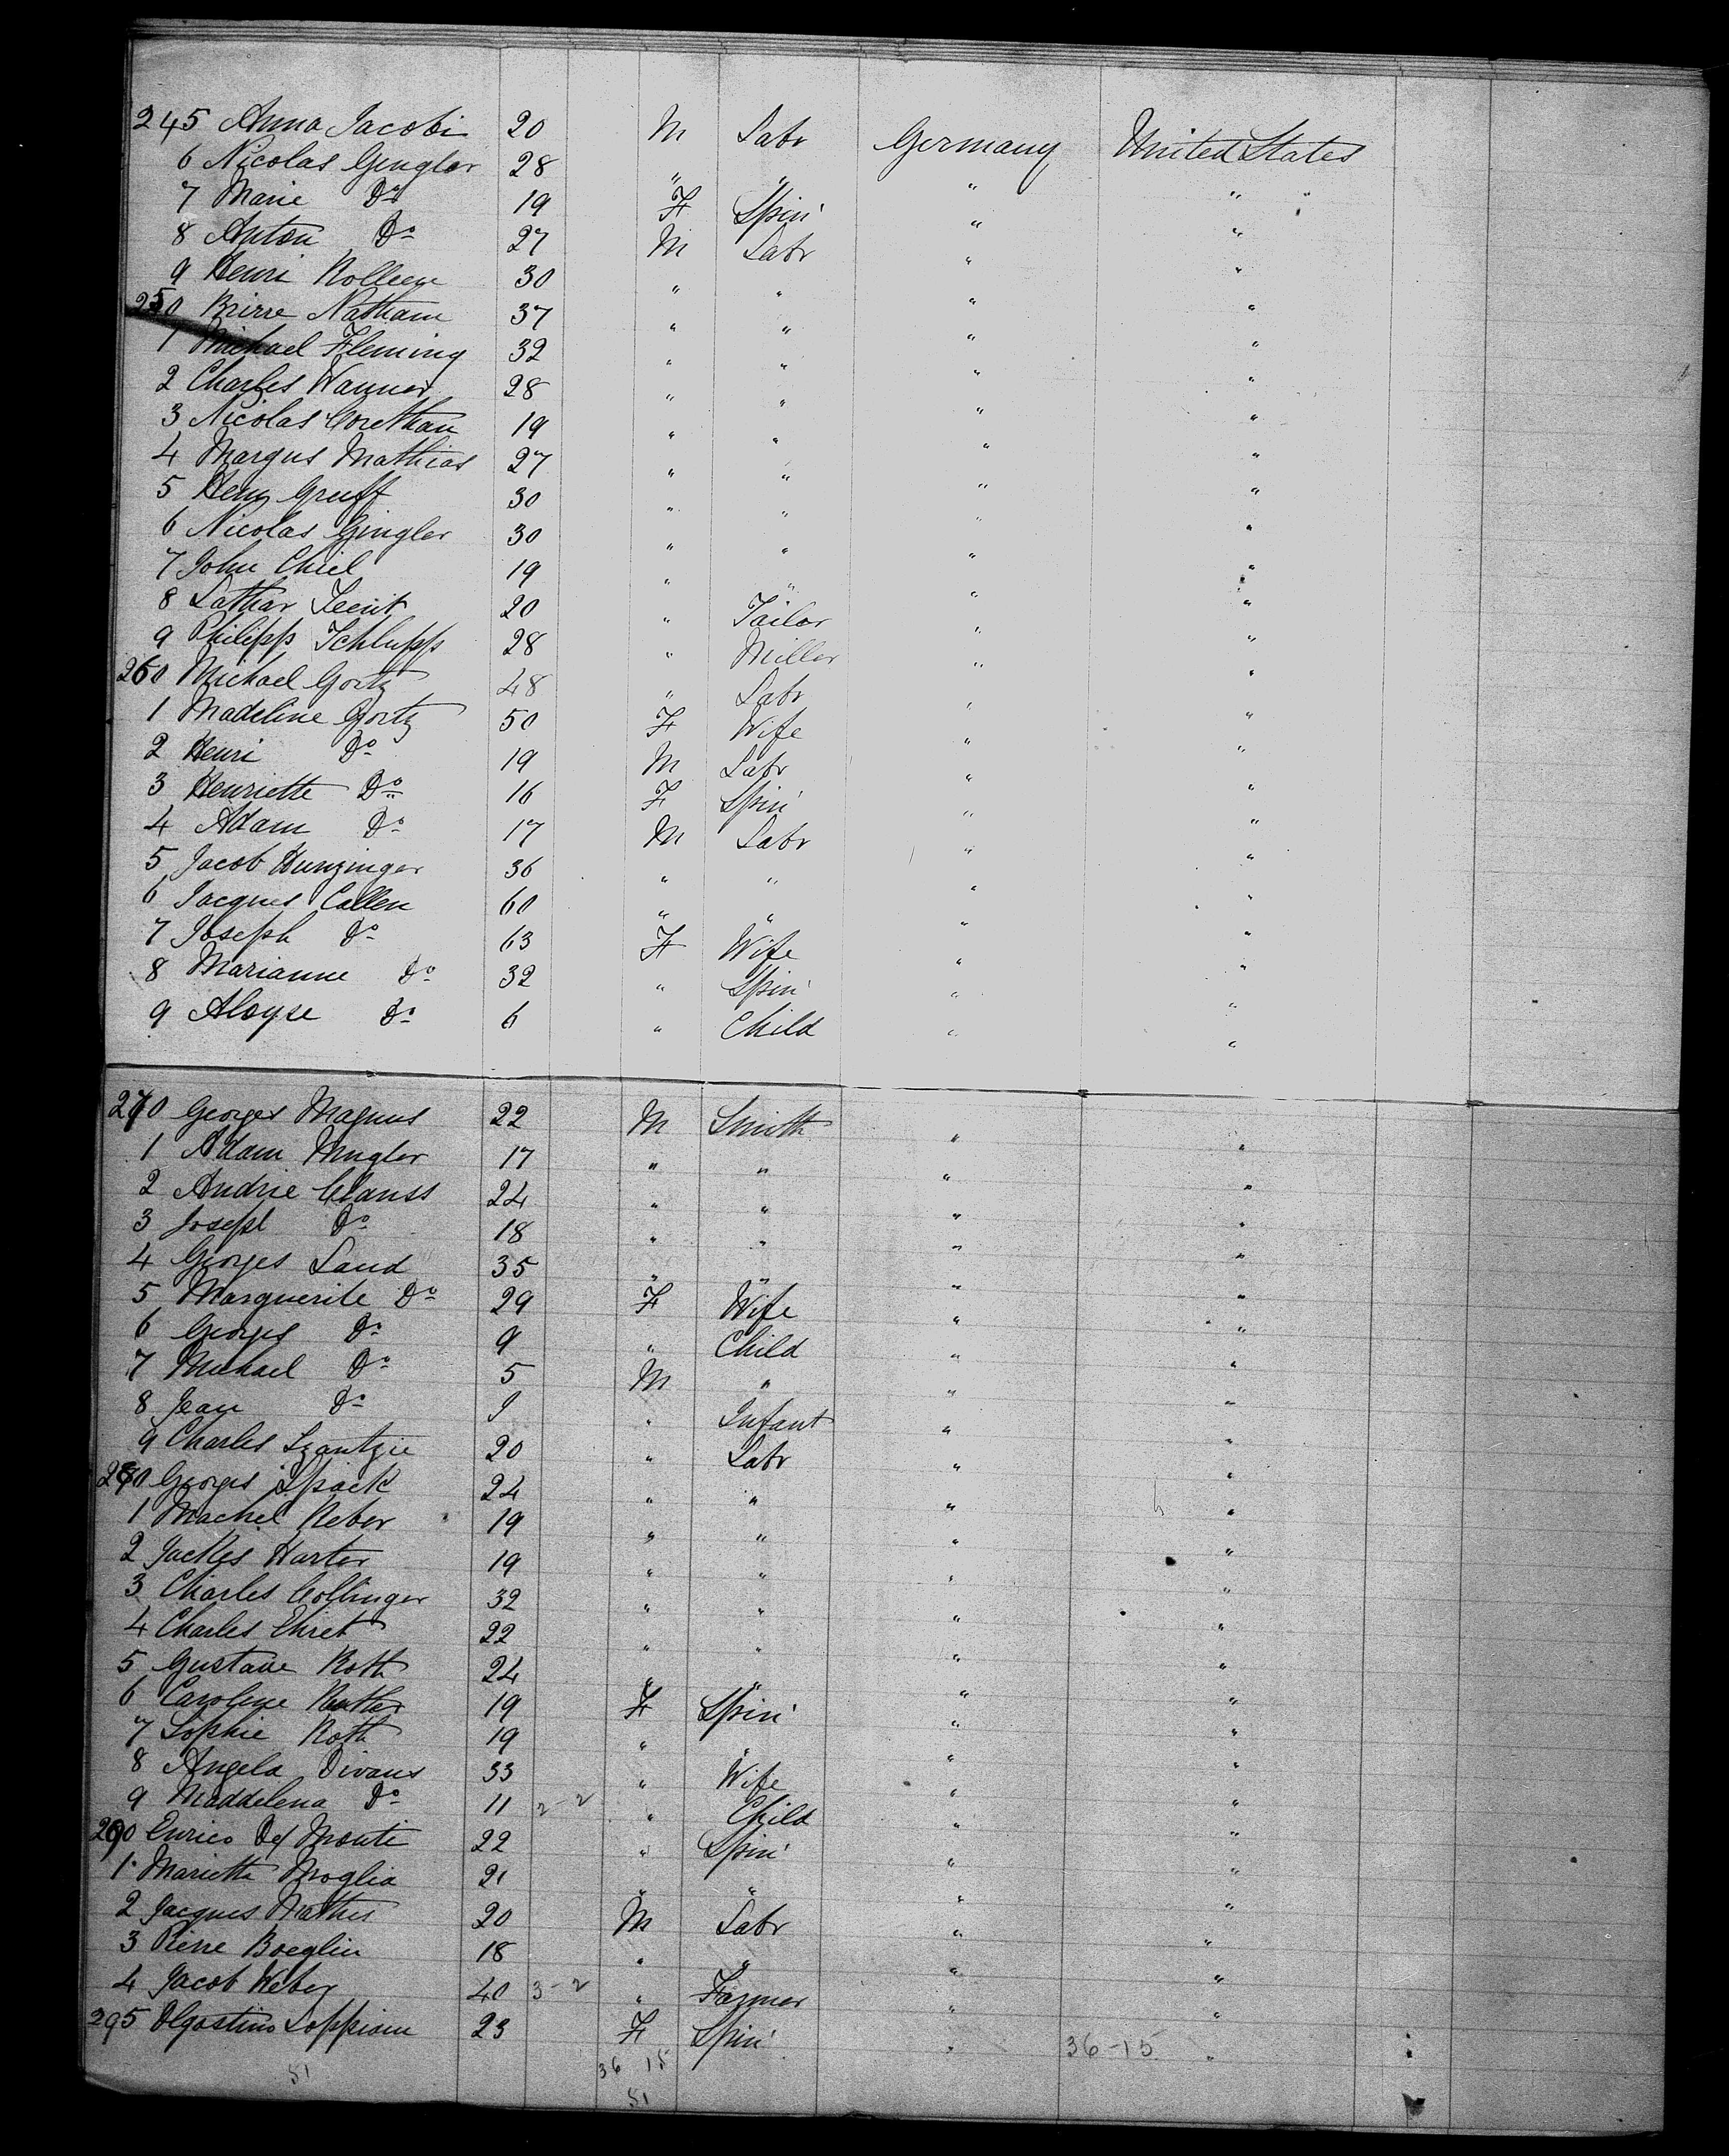 245 Anna Jacobi 20 M Labr Germany United States
6 Nicolas Gengler 28 " " " "
7 Marie Do 19 F Spin' " "
8 Anton Do 27 M Labr " "
9 Henri 30 " " " "
250 Nathan 37 " " " "
1 Michael Fleming 32 " " " "
2 Charles Wanner 28 " " " "
3 Nicolas Corethau 19 " " " "
4 Margus Mathias 27 " " " "
5 Henz Greff 30 " " " "
6 Nicolas Gingler 30 " " " "
7 John Chiel 19 " " " "
8 Lathar 20 " Tailor " "
9 Philipp Schlupp 28 " Miller " "
260 Michael Gortz 48 " Labr " "
1 Madeline Gortz 50 F Wife " "
2 Henri Do 19 M Labr " "
3 Henriette Do 16 F Spin' " "
4 Adam Do 17 M Labr " "
5 Jacob Hunzinger 36 " " " "
6 Jacques Callen 60 " " " "
7 Joseph Do 63 F Wife " "
8 Marianne Do 32 " Spin' " "
9 Aloyse Do 6 " Child " "
270 Georges Magnus 22 M Smith " "
1 Adam Mugler 17 " " " "
2 Andrie Clauss 24 " " " "
3 Joseph Do 18 " " " "
4 Georges Land 35 " " " "
5 Marguerite Do 29 F Wife " "
6 Georges Do 9 " Child " "
7 Michael Do 5 M " " "
8 Jean Do " Infant " "
9 Charles 20 " Labr " "
280 Georges Spack 24 " " " "
1 Machel Reber 19 " " " "
2 Jackes Harter 19 " " " "
3 Charles Collinger 32 " " " "
4 Charles Ehret 22 " " " "
5 Gustave Roth 24 " " " "
6 Caroline 19 F Spin' " "
7 Sophie Roth 19 " " " "
8 Angela Divans 33 " Wife " "
9 Maddelena Do 11 2-2 " Child " "
290 Enrico Del Monti 22 " Spin' " "
1 Marietta Moglia 21 " " " "
2 Jacques Mathis 20 M Labr " "
3 Pierre Boeglin 18 " " " "
4 Jacob Weber 40 3-2 " Farmer " "
295 Soppiani 23 F Spin' " 36-15 "
51 36 15
51